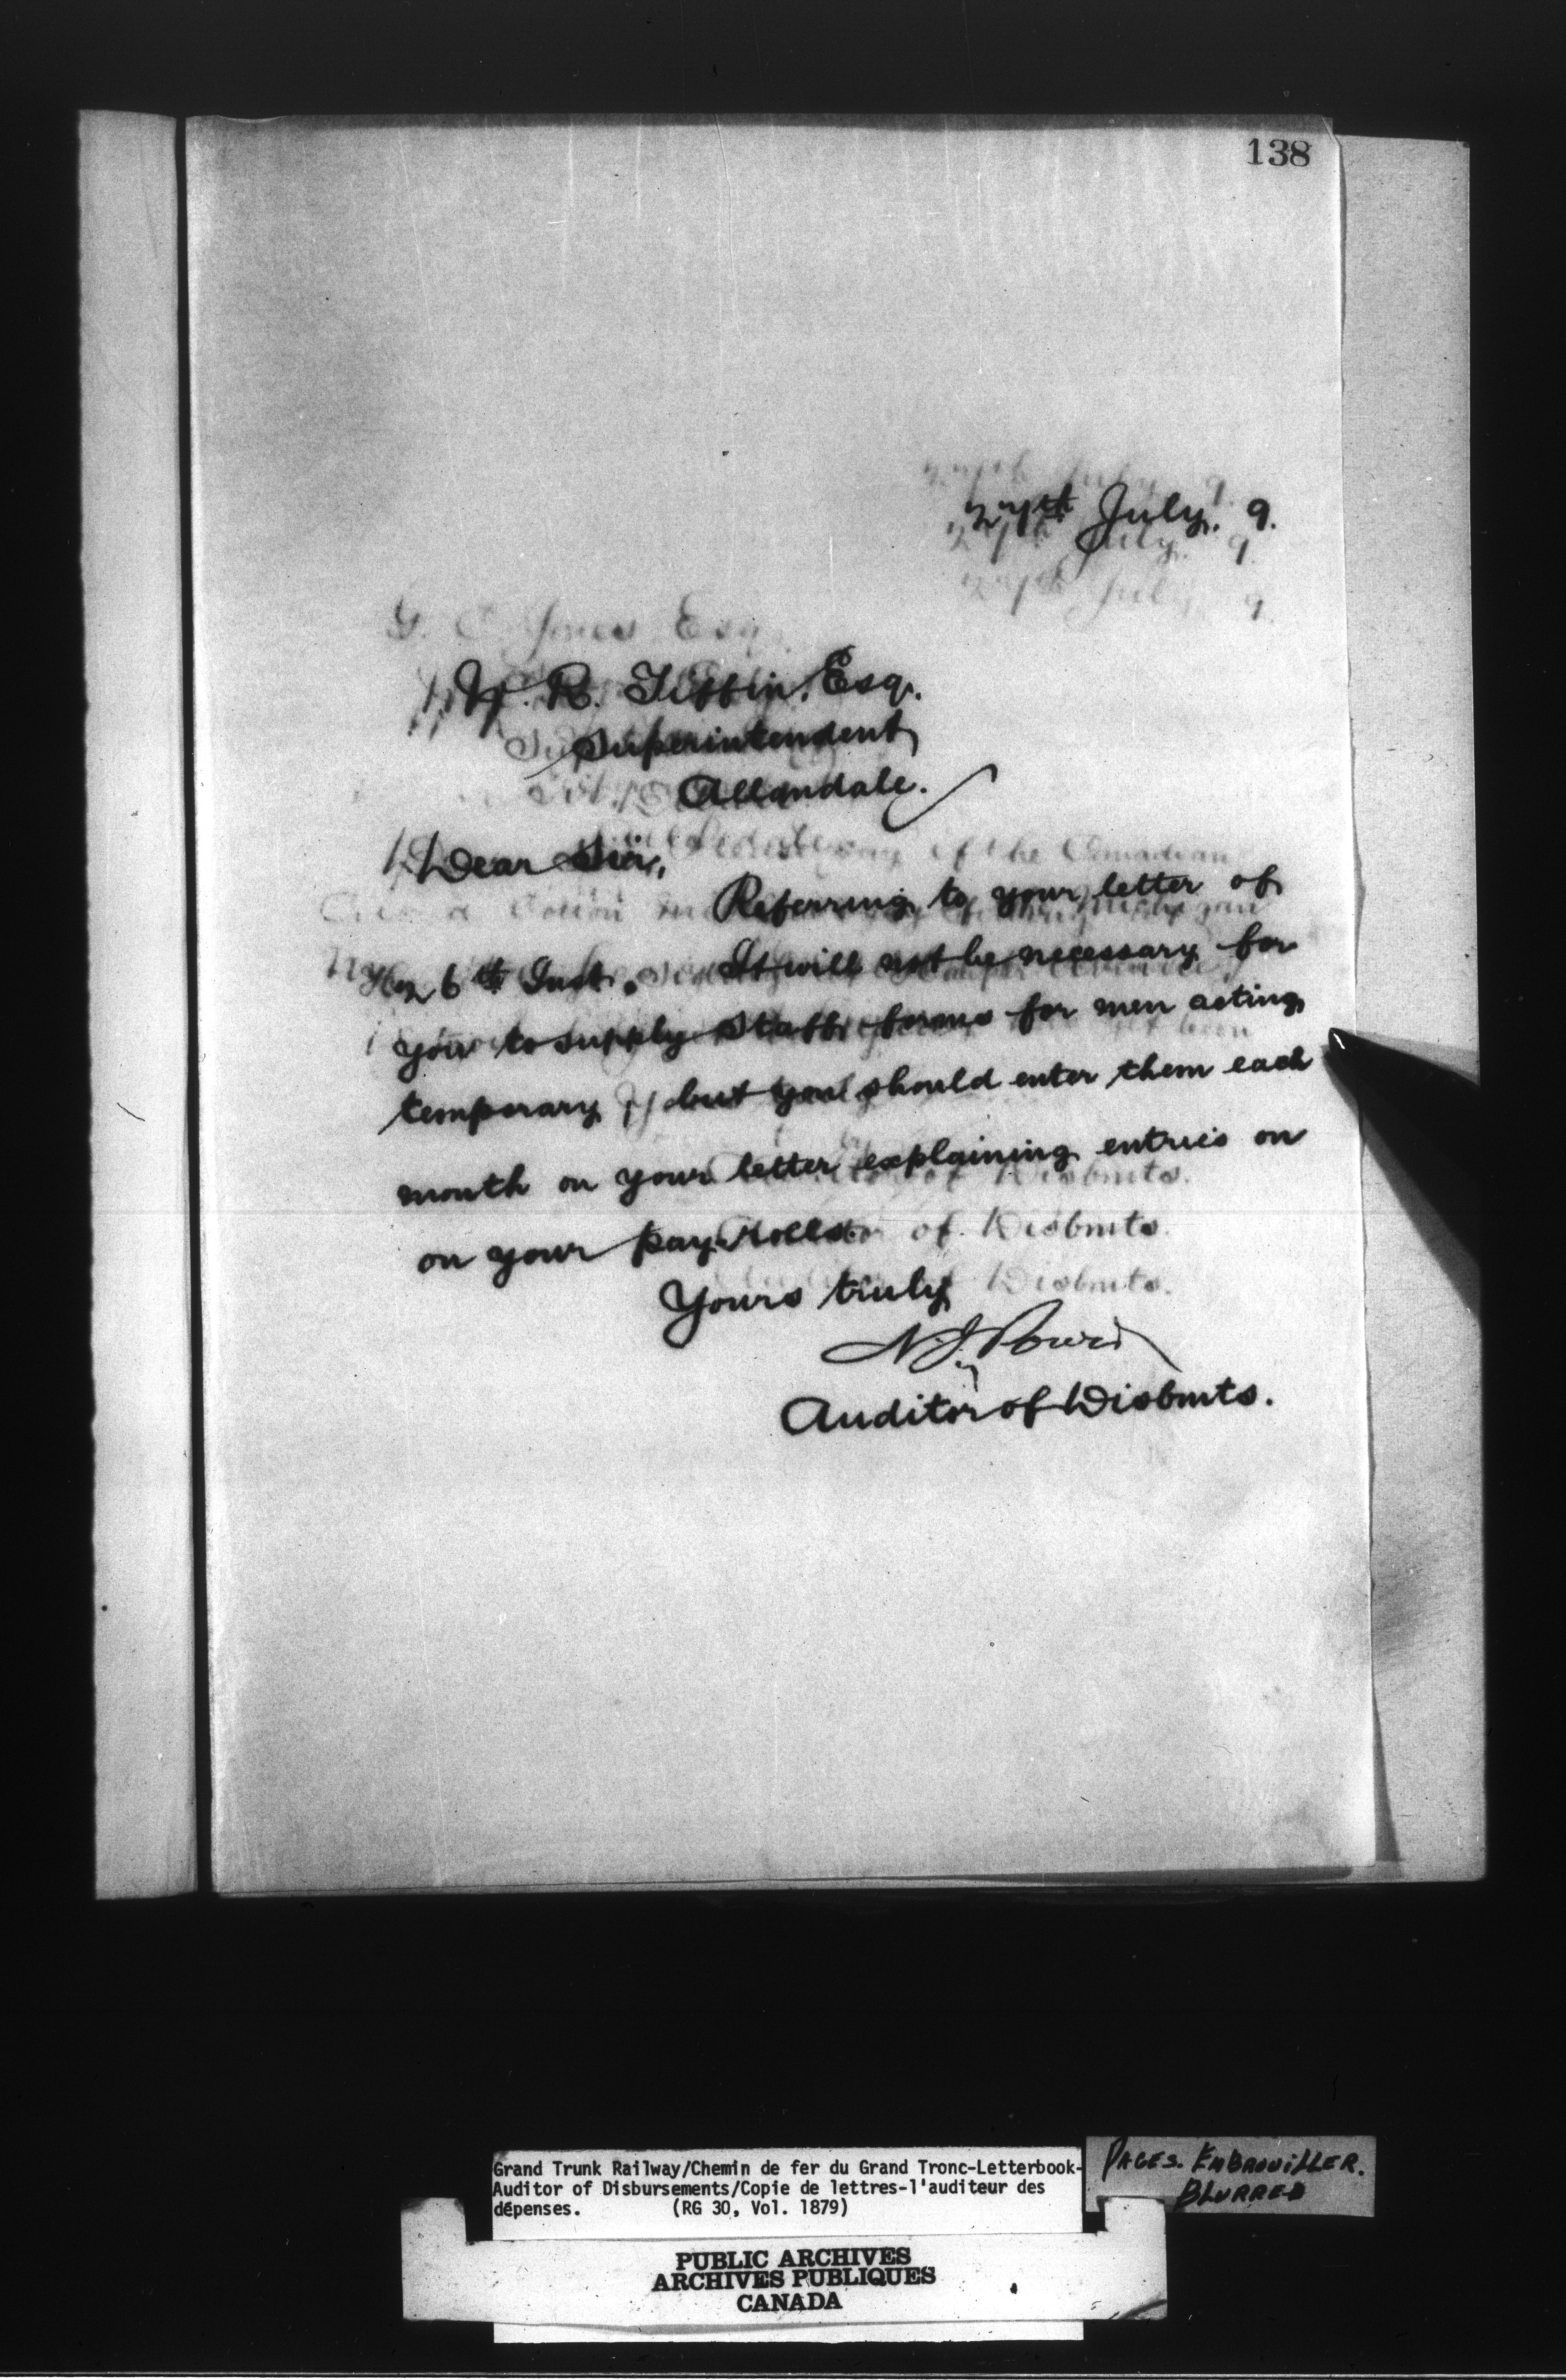 138
27th July. 9.
W. R. Tiffin, Esq.
Superintendent
Allandale.
Dear Sir,
Referring to your letter of
26th Inst. It will not be necessary for
you to supply Staff forms for men acting
temporary, but you should enter them each
month on your letter explaining entries on
on your pay rolls
Yours truly
N. J. Power
Auditor of Disbmts.
Grand Trunk Railway/Chemin de fer du Grand Tronc-Letterbook-
Auditor of Disbursements/Copie de lettres-l'auditeur des
dépenses. (RG 30, Vol. 1879)
PAGES. EMBROUILLER.
BLURRED
PUBLIC ARCHIVES
ARCHIVES PUBLIQUES
CANADA